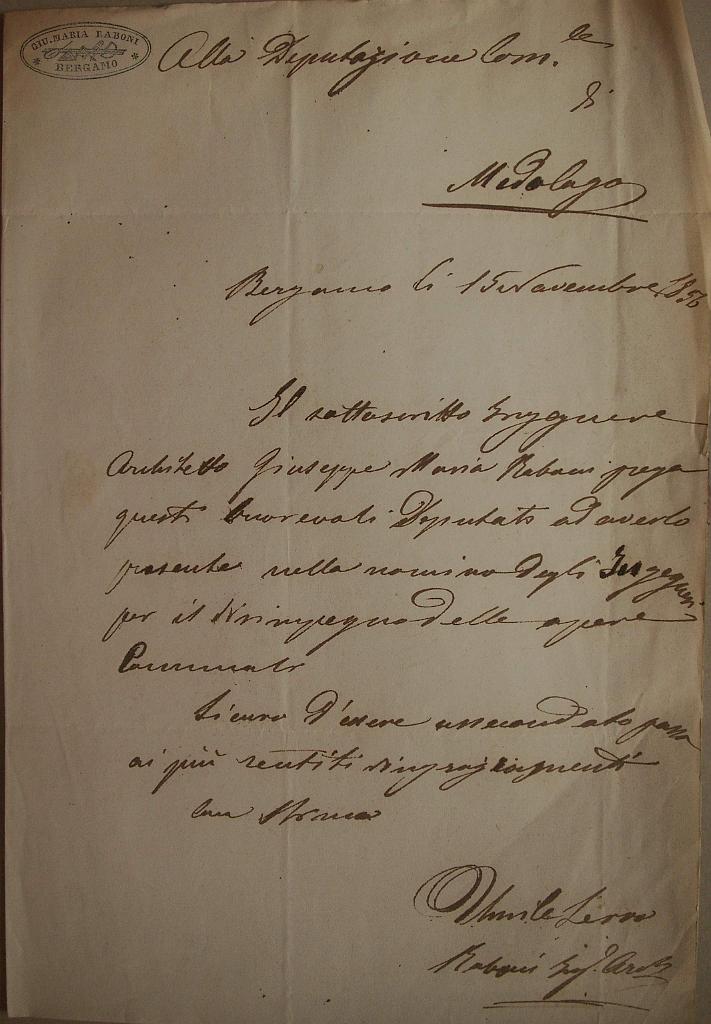 GIU. MARIA RABONI
BERGAMO
Alla Deputazione Com.le
di
Medolago
Bergamo li 15 Novembre 1856
Il sottoscritto Ingegnere
Architetto Giuseppe Maria Raboni prega
questi onorevoli Deputati ad averlo
presente nella nomina degli Ingegneri
per il disimpegno delle opere
Communali
Sicuro d'essere assecondato passa
ai più sentiti ringraziamenti
Con Stima
Umile Servo
Raboni Ing.e Arch.